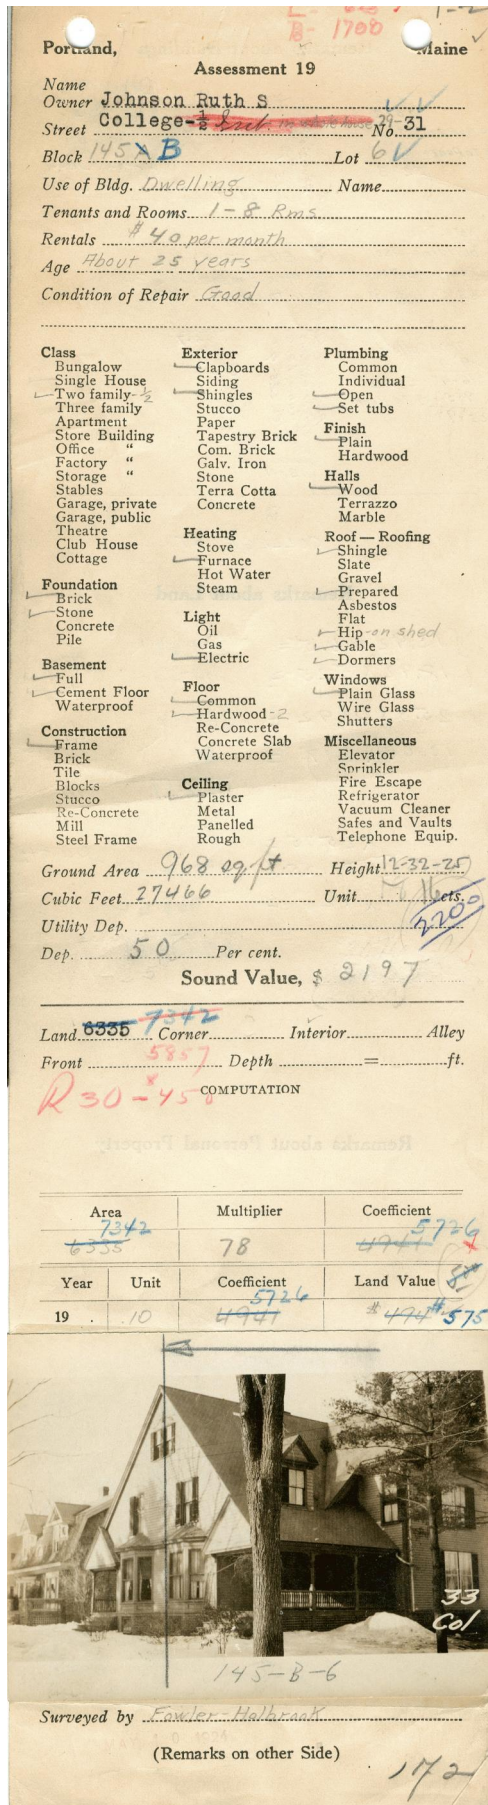 B- 1700
Portland, Maine
Assessment 19
Name
Owner Johnson Ruth S
Street College-½ Int. in whole house No. 29-31
Block 145 A B Lot 6
Use of Bldg. Dwelling Name
Tenants and Rooms 1-8 Rms
Rentals $40 per month
Age About 25 years
Condition of Repair Good
Class
Bungalow
Single House
Two family-½
Three family
Apartment
Store Building
Office "
Factory "
Storage "
Stables
Garage, private
Garage, public
Theatre
Club House
Cottage
Foundation
Brick
Stone
Concrete
Pile
Basement
Full
Cement Floor
Waterproof
Construction
Frame
Brick
Tile
Blocks
Stucco
Re-Concrete
Mill
Steel Frame
Exterior
Clapboards
Siding
Shingles
Stucco
Paper
Tapestry Brick
Com. Brick
Galv. Iron
Stone
Terra Cotta
Concrete
Heating
Stove
Furnace
Hot Water
Steam
Light
Oil
Gas
Electric
Floor
Common
Hardwood-2
Re-Concrete
Concrete Slab
Waterproof
Ceiling
Plaster
Metal
Panelled
Rough
Plumbing
Common
Individual
Open
Set tubs
Finish
Plain
Hardwood
Halls
Wood
Terrazzo
Marble
Roof — Roofing
Shingle
Slate
Gravel
Prepared
Asbestos
Flat
Hip-on shed
Gable
Dormers
Windows
Plain Glass
Wire Glass
Shutters
Miscellaneous
Elevator
Sprinkler
Fire Escape
Refrigerator
Vacuum Cleaner
Safes and Vaults
Telephone Equip.
Ground Area 968 sq ft Height 12-32-25
Cubic Feet 27466 Unit 16 cts.
2200
Utility Dep.
Dep. 50 Per cent.
Sound Value, $ 2197
Land 6335 7342 Corner Interior Alley
5857
Front Depth = ft.
R 30 - $450
COMPUTATION
Area Multiplier Coefficient
7342 5726
6335 78 4941
Year Unit Coefficient Land Value
5726
19 . 10 4941 $494 $575
33
Col
145-B-6
Surveyed by Fowler-Holbrook
(Remarks on other Side)
172